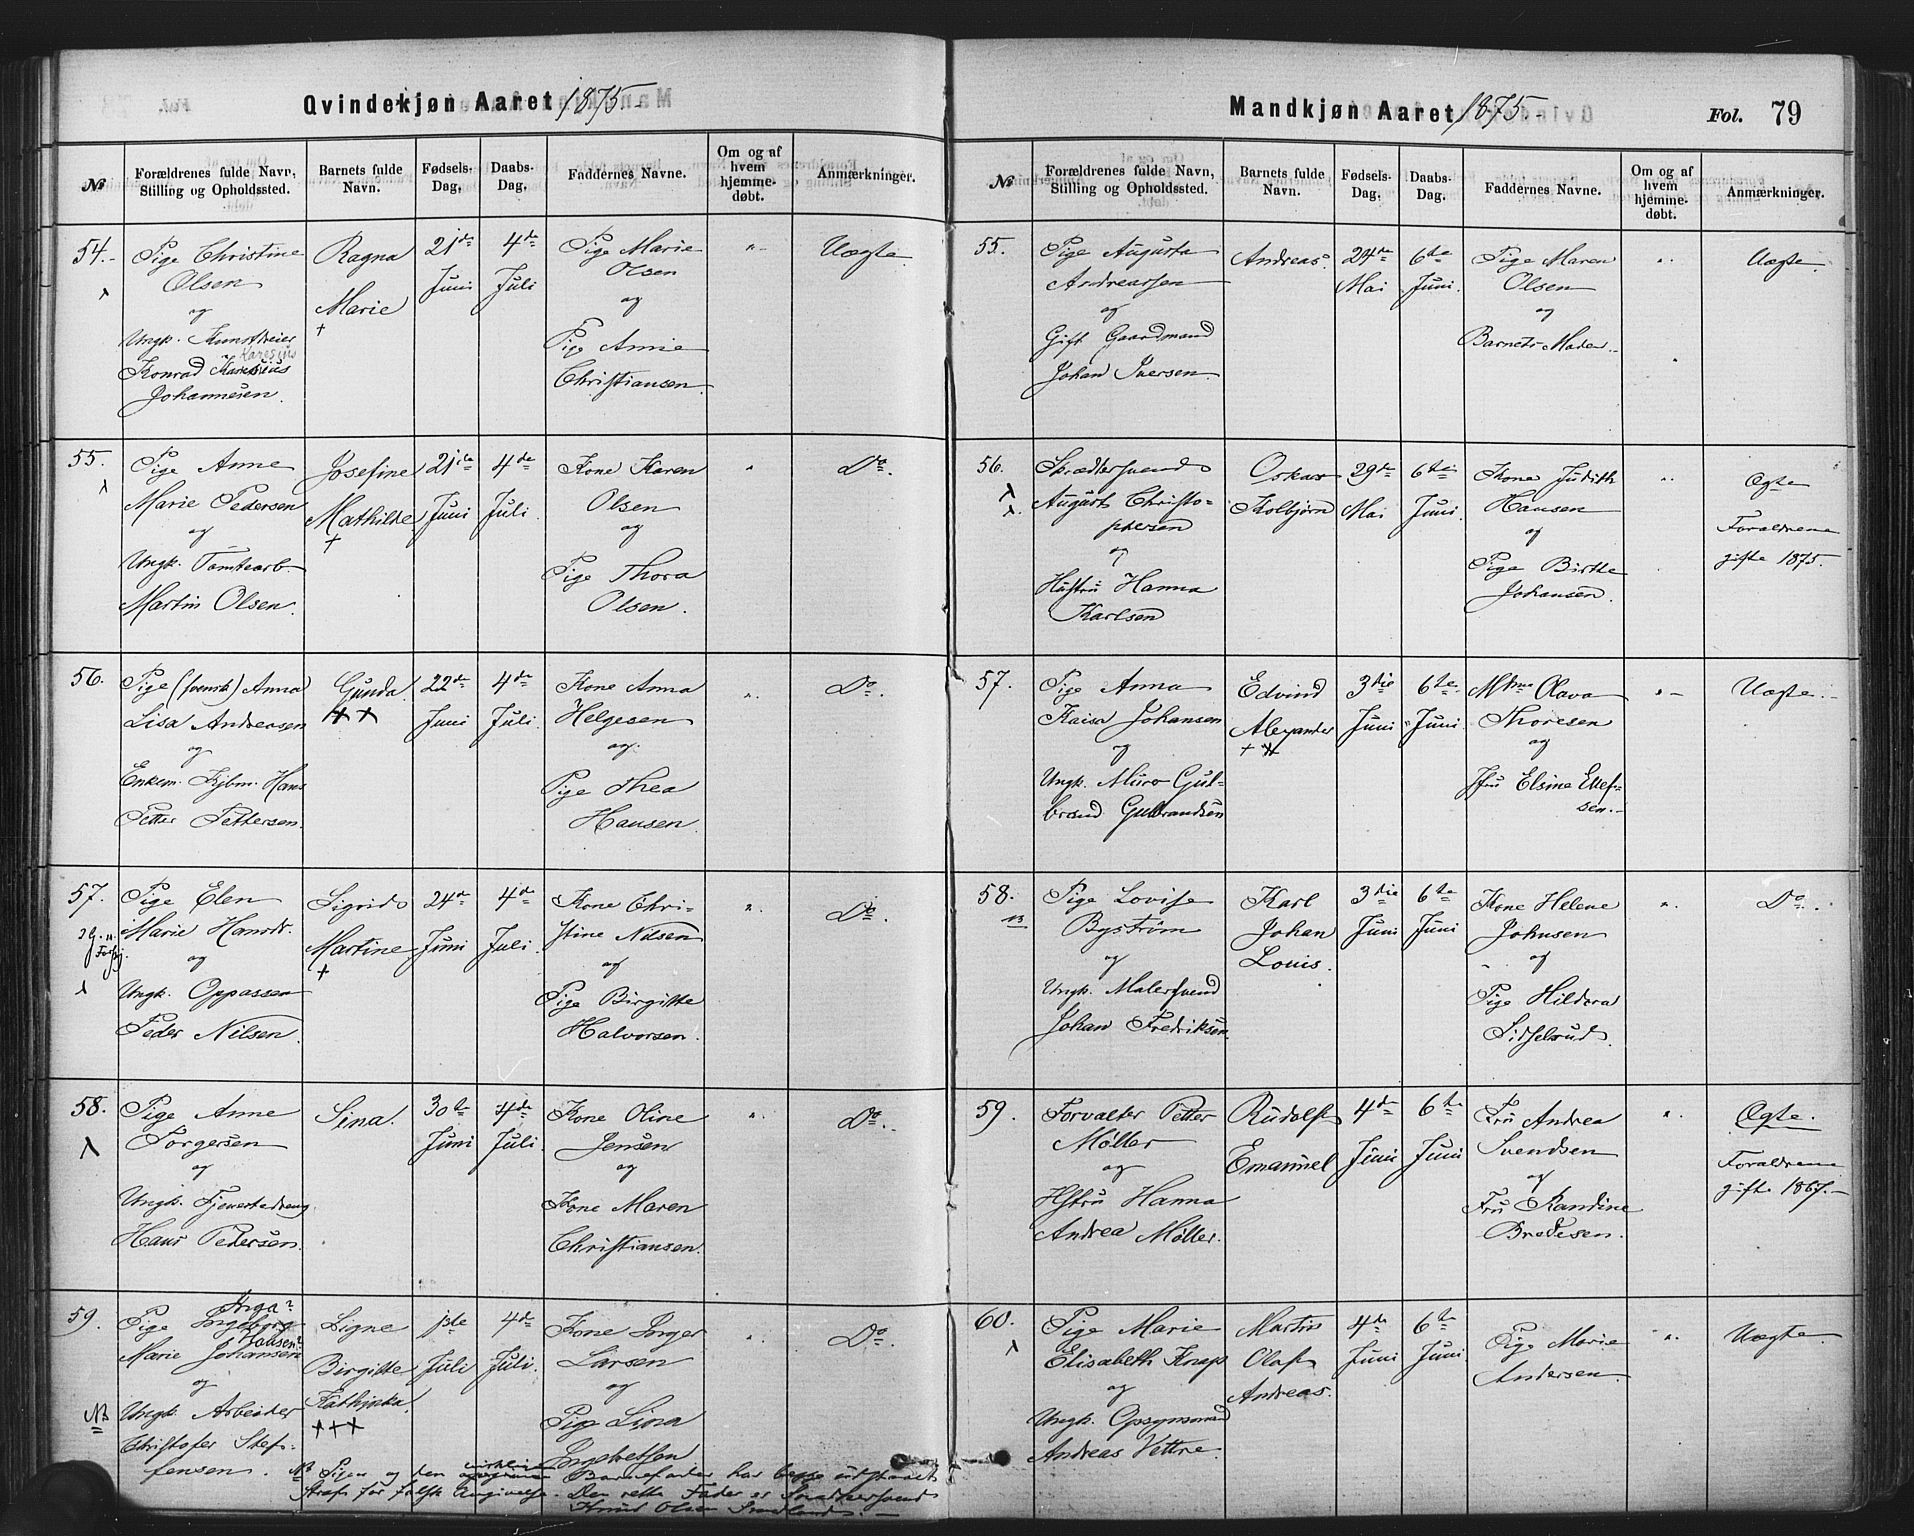 Qvindekjøn Aaret 1875
№
Forældrenes fulde Navn,
Stilling og Opholdssted.
Barnets fulde
Navn.
Fødsels-
Dag,
Daabs-
Dag,
Faddernes Navne.
Om og af
hvem
hjemme-
døbt.
Anmærkninger.
54.
Pige Christine
Olsen
og
Ungk.
Konrad
Johannesen.
Ragna
Marie
21de
Juni
4de
Juli
Pige Marie
Olsen
og
Pige Annie
Christiansen.
Uægte.
55.
Pige Anne
Marie Pedersen
og
Ungk. Tomtearb.
Martin Olsen.
Josefine
Mathilde
21de
Juni
4de
Juli
Kone Karen
Olsen
og
Pige Thora
Olsen.
Do
56.
Pige (svensk) Anna
Lisa Andersen
og
Enkem. Kjbm. Hans
Petter Pettersen.
Gunda
22de
Juni
4de
Juli
Kone Anna
Helgesen
og
Pige Thea
Hansen.
Do
57.
Pige Elen
Marie Hansdr.
og
Ungk. Oppasser
Peder Nilsen.
Sigrid
Martine
24de
Juni
4de
Juli
Kone Chri-
stine Nilsen
og
Pige Birgitte
Halvorsen.
Do
58.
Pige Anne
Torgersen
og
Ungk. Tjenestedreng
Hans Pedersen.
Sina.
30te
Juni
4de
Juli
Kone Oline
Jensen
og
Kone Maren
Christiansen.
Do
59.
Pige Ingeborg
Hansen?
Marie Johansen
og
Ungk. Arbeider
Christofer Stef-
fensen.
NB
Signe
Birgitte
Kathinka.
1ste
Juli
4de
Juli.
Kone Inger
Larsen
og
Pige Lina
Do
NB Pigen og den
Barnefader har begge udstaaet
Straf for falsk Angivelse. Den rette Fader er Snedkersvend
Knud Olsen
Mandkjøn Aaret 1875
Fol. 79
№
Forældrenes fulde Navn,
Stilling og Opholdssted.
Barnets fulde
Navn.
Fødsels-
Dag.
Daabs-
Dag.
Faddernes Navne.
Om og af
hvem
hjemme-
døbt.
Anmærkninger.
55.
Pige Augusta
Andreassen
og
Gift Gaardmand
Johan Iversen.
Andreas.
24de
Mai
6te
Juni.
Pige Maren
Olsen
og
Barnets Moder.
Uægte.
56.
Skrædersvend
August Christo-
phersen
og
Hustru Hanna
Karlsen
Oskar
Kolbjørn
29de
Mai
6te
Juni.
Kone Judith
Hansen
og
Pige Birthe
Johansen.
Ægte
Foraldrene
gifte 1875.
57.
Pige Anna
Kaisa Johansen
og
Ungk. Murer Gul-
brand Gulbrandsen
Edvind
Alexander
3die
Juni
6te
Juni
Mdme Olava
Thoresen
og
Jfru Elsine Ellef-
sen.
Uægte.
58.
NB
Pige Lovise
Bystrøm
og
Ungk. Malersvend
Johan Fredriksen.
Karl
Johan
Louis.
3die
Juni
6te
Juni
Kone Helene
Johnsen
og
Pige Hildora
Sidselrud.
Do
59.
Forvalter Petter
Møller
og
Hstru Hanna
Andrea Møller.
Rudolf
Emanuel
4de
Juni
6te
Juni
Fru Andrea
Svendsen
og
Fru Randine
Bredesen.
Ægte.
Foraldrene
gifte 1867.
60.
Pige Marie
Elisabeth Knap
og
Ungk. Opsynsmand
Andreas Vettre.
Martin
Olaf
Andreas.
4de
Juni
6te
Juni
Pige Marie
Andersen.
Uægte.